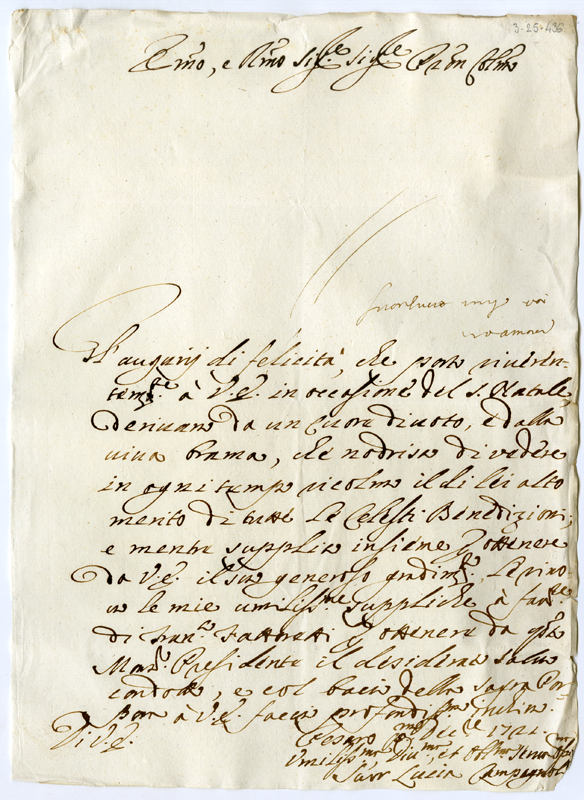 3-25-436
Emo, e Rmo Sigre Sigre Pron Colmo
Gl'augurij di felicità, che porto riveren-
temte à V.E. in occasione del S. Natale
derivano da un cuore divoto, e dalla
viva brama, che nodrisco di vedere
in ogni tempo ricolmo il di lei alto
merito di tutte le Celesti Benedizioni;
e mentre supplico insieme ottenere
da V.E. il suo generoso gradimto,
le mie umilisme suppliche à favre
di Franco ottenere da qto
Mare Presidente il desiderato salvo
condotto, e col bacio della Sacra Por-
pora à V.E. faccio profondma inchino.
Pesaro Dece 1721.
Di V.E.
Umilismo Divmo, et Obmo Servo
Suor Lucia